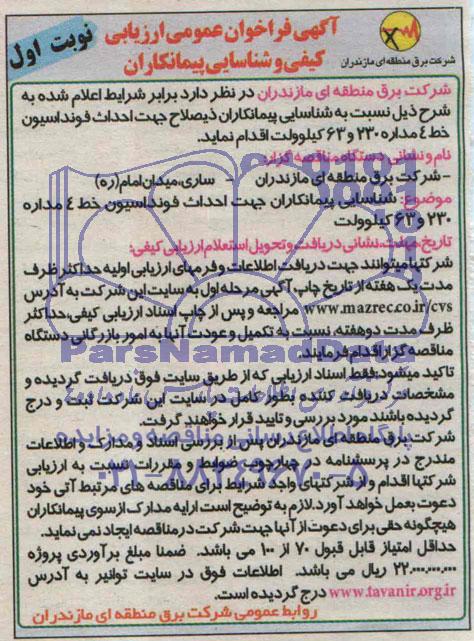 نوبت اول
آگهی فراخوان عمومی ارزیابی
کیفی و شناسایی پیمانکاران
شرکت برق منطقه ای مازندران
شرکت برق منطقه ای مازندران در نظر دارد برابر شرایط اعلام شده به
شرح ذیل نسبت به شناسایی پیمانکاران ذیصلاح جهت احداث فونداسیون
خط ٤ مداره ۲۳۰ و ۶۳ کیلوولت اقدام نماید.
نام و نشانی دستگاه مناقصه گزار:
-شرکت برق منطقه ای مازندران - ساری،میدان امام(ره)
موضوع: شناسایی پیمانکاران جهت احداث فونداسیون خط ٤ مداره
۲۳۰ و ۶۳ کیلوولت
تاریخ،مهلت،نشانی دریافت و تحویل استعلام ارزیابی کیفی:
شرکتها میتوانند جهت دریافت اطلاعات و فرمهای ارزیابی اولیه حداکثر ظرف
مدت یک هفته از تاریخ چاپ آگهی مرحله اول به سایت این شرکت به آدرس
www.mazrec.co.ir/cvs مراجعه و پس از چاپ اسناد ارزیابی کیفی،حداکثر
ظرف مدت دوهفته، نسبت به تکمیل و عودت آنها به امور بازرگانی دستگاه
مناقصه گزار اقدام فرمایند.
تاکید میشود:فقط اسناد ارزیابی که از طریق سایت فوق دریافت گردیده و
مشخصات دریافت کننده بطور کامل در سایت این شرکت ثبت و درج
گردیده باشند مورد بررسی و تایید قرار خواهند گرفت.
شرکت برق منطقه ای مازندران پس از بررسی اسناد و مدارک و اطلاعات
مندرج در پرسشنامه در چهارچوب ضوابط و مقررات نسبت به ارزیابی
شرکتها اقدام و از شرکتهای واجد شرایط برای مناقصه های مرتبط آتی خود
دعوت بعمل خواهد آورد.لازم به توضیح است ارایه مدارک از سوی پیمانکاران
هیچگونه حقی برای دعوت از آنها جهت شرکت در مناقصه ایجاد نمی نماید.
حداقل امتیاز قابل قبول ۷۰ از ۱۰۰ می باشد. ضمنا مبلغ برآوردی پروژه
۲۲,۰۰۰,۰۰۰,۰۰۰ ریال می باشد. اطلاعات فوق در سایت توانیر به آدرس
www.tavanir.org.ir درج گردیده است.
روابط عمومی شرکت برق منطقه ای مازندران
ParsNamadData
پایگاه اطلاع رسانی مناقصه و مزایده